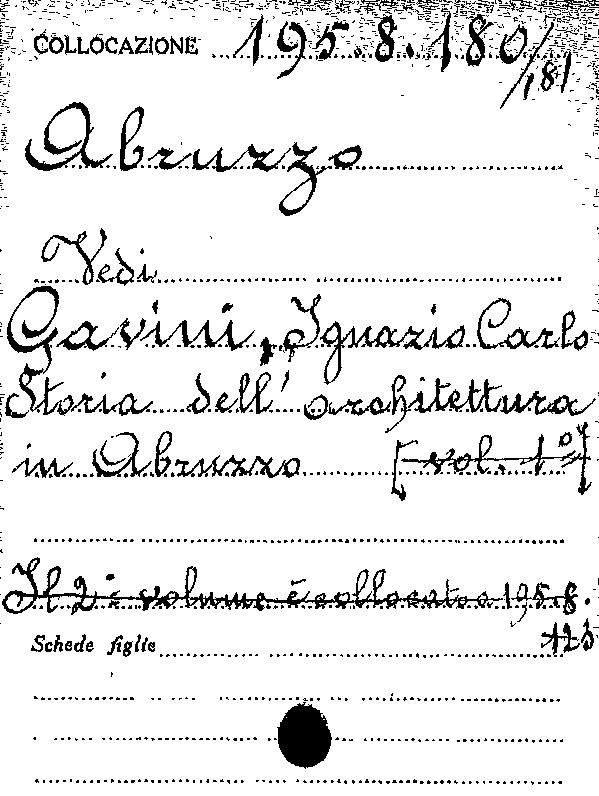 COLLOCAZIONE 195.8.180/181
Abruzzo
Vedi
Gavini, Ignazio Carlo
Storia dell'architettura
in Abruzzo [vol. 1º]
Il 2º volume è collocato a 195.8.
Schede figlie